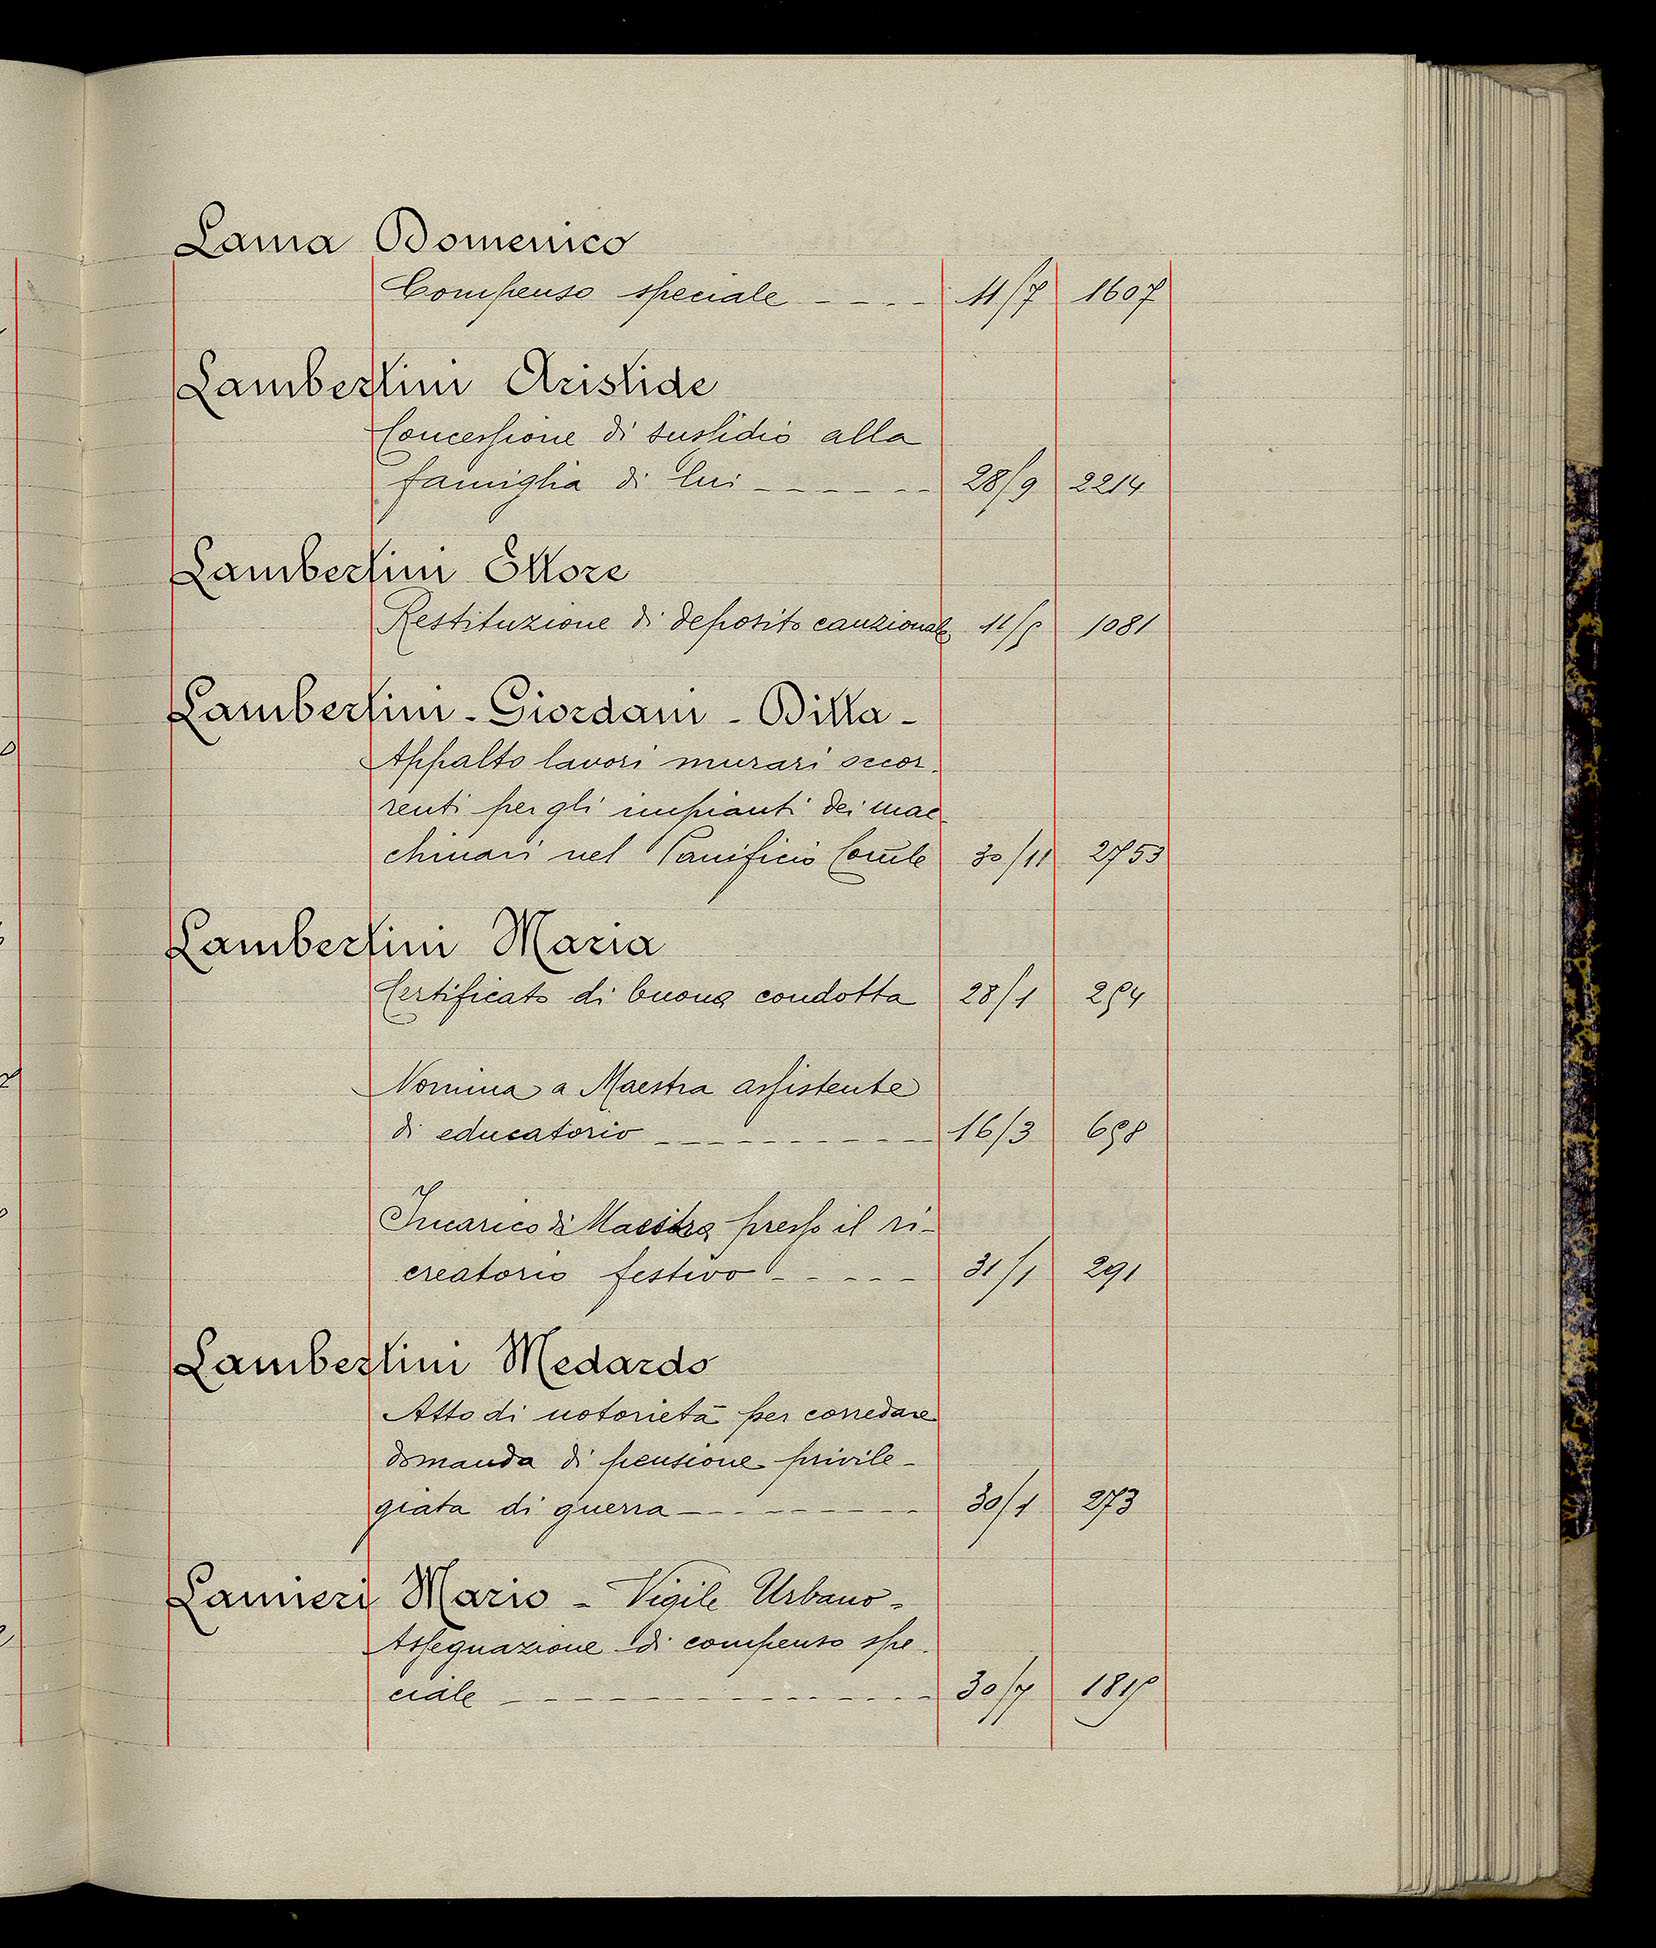 Lama Domenico
Compenso speciale - - - - 11/7 1607
Lambertini Aristide
Concessione di sussidio alla
famiglia di lui - - - - - - 28/9 2214
Lambertini Ettore
Restituzione di deposito cauzionale 11/5 1081
Lambertini - Giordani - Ditta -
Appalto lavori murari occor-
renti per gli impianti dei mac-
chinari nel Panificio Comle 30/11 2753
Lambertini Maria
Certificato di buona condotta 28/1 254
Nomina a Maestra assistente
di educatorio - - - - - - - - - - 16/3 658
Incarico di Maestra presso il ri-
creatorio festivo - - - - - 31/1 291
Lambertini Medardo
Atto di notorietà per corredare
domanda di pensione privile-
giata di guerra - - - - - - - - 30/1 273
Lanieri Mario - Vigile Urbano -
Assegnazione di compenso spe-
ciale - - - - - - - - - - - - - - - - 30/7